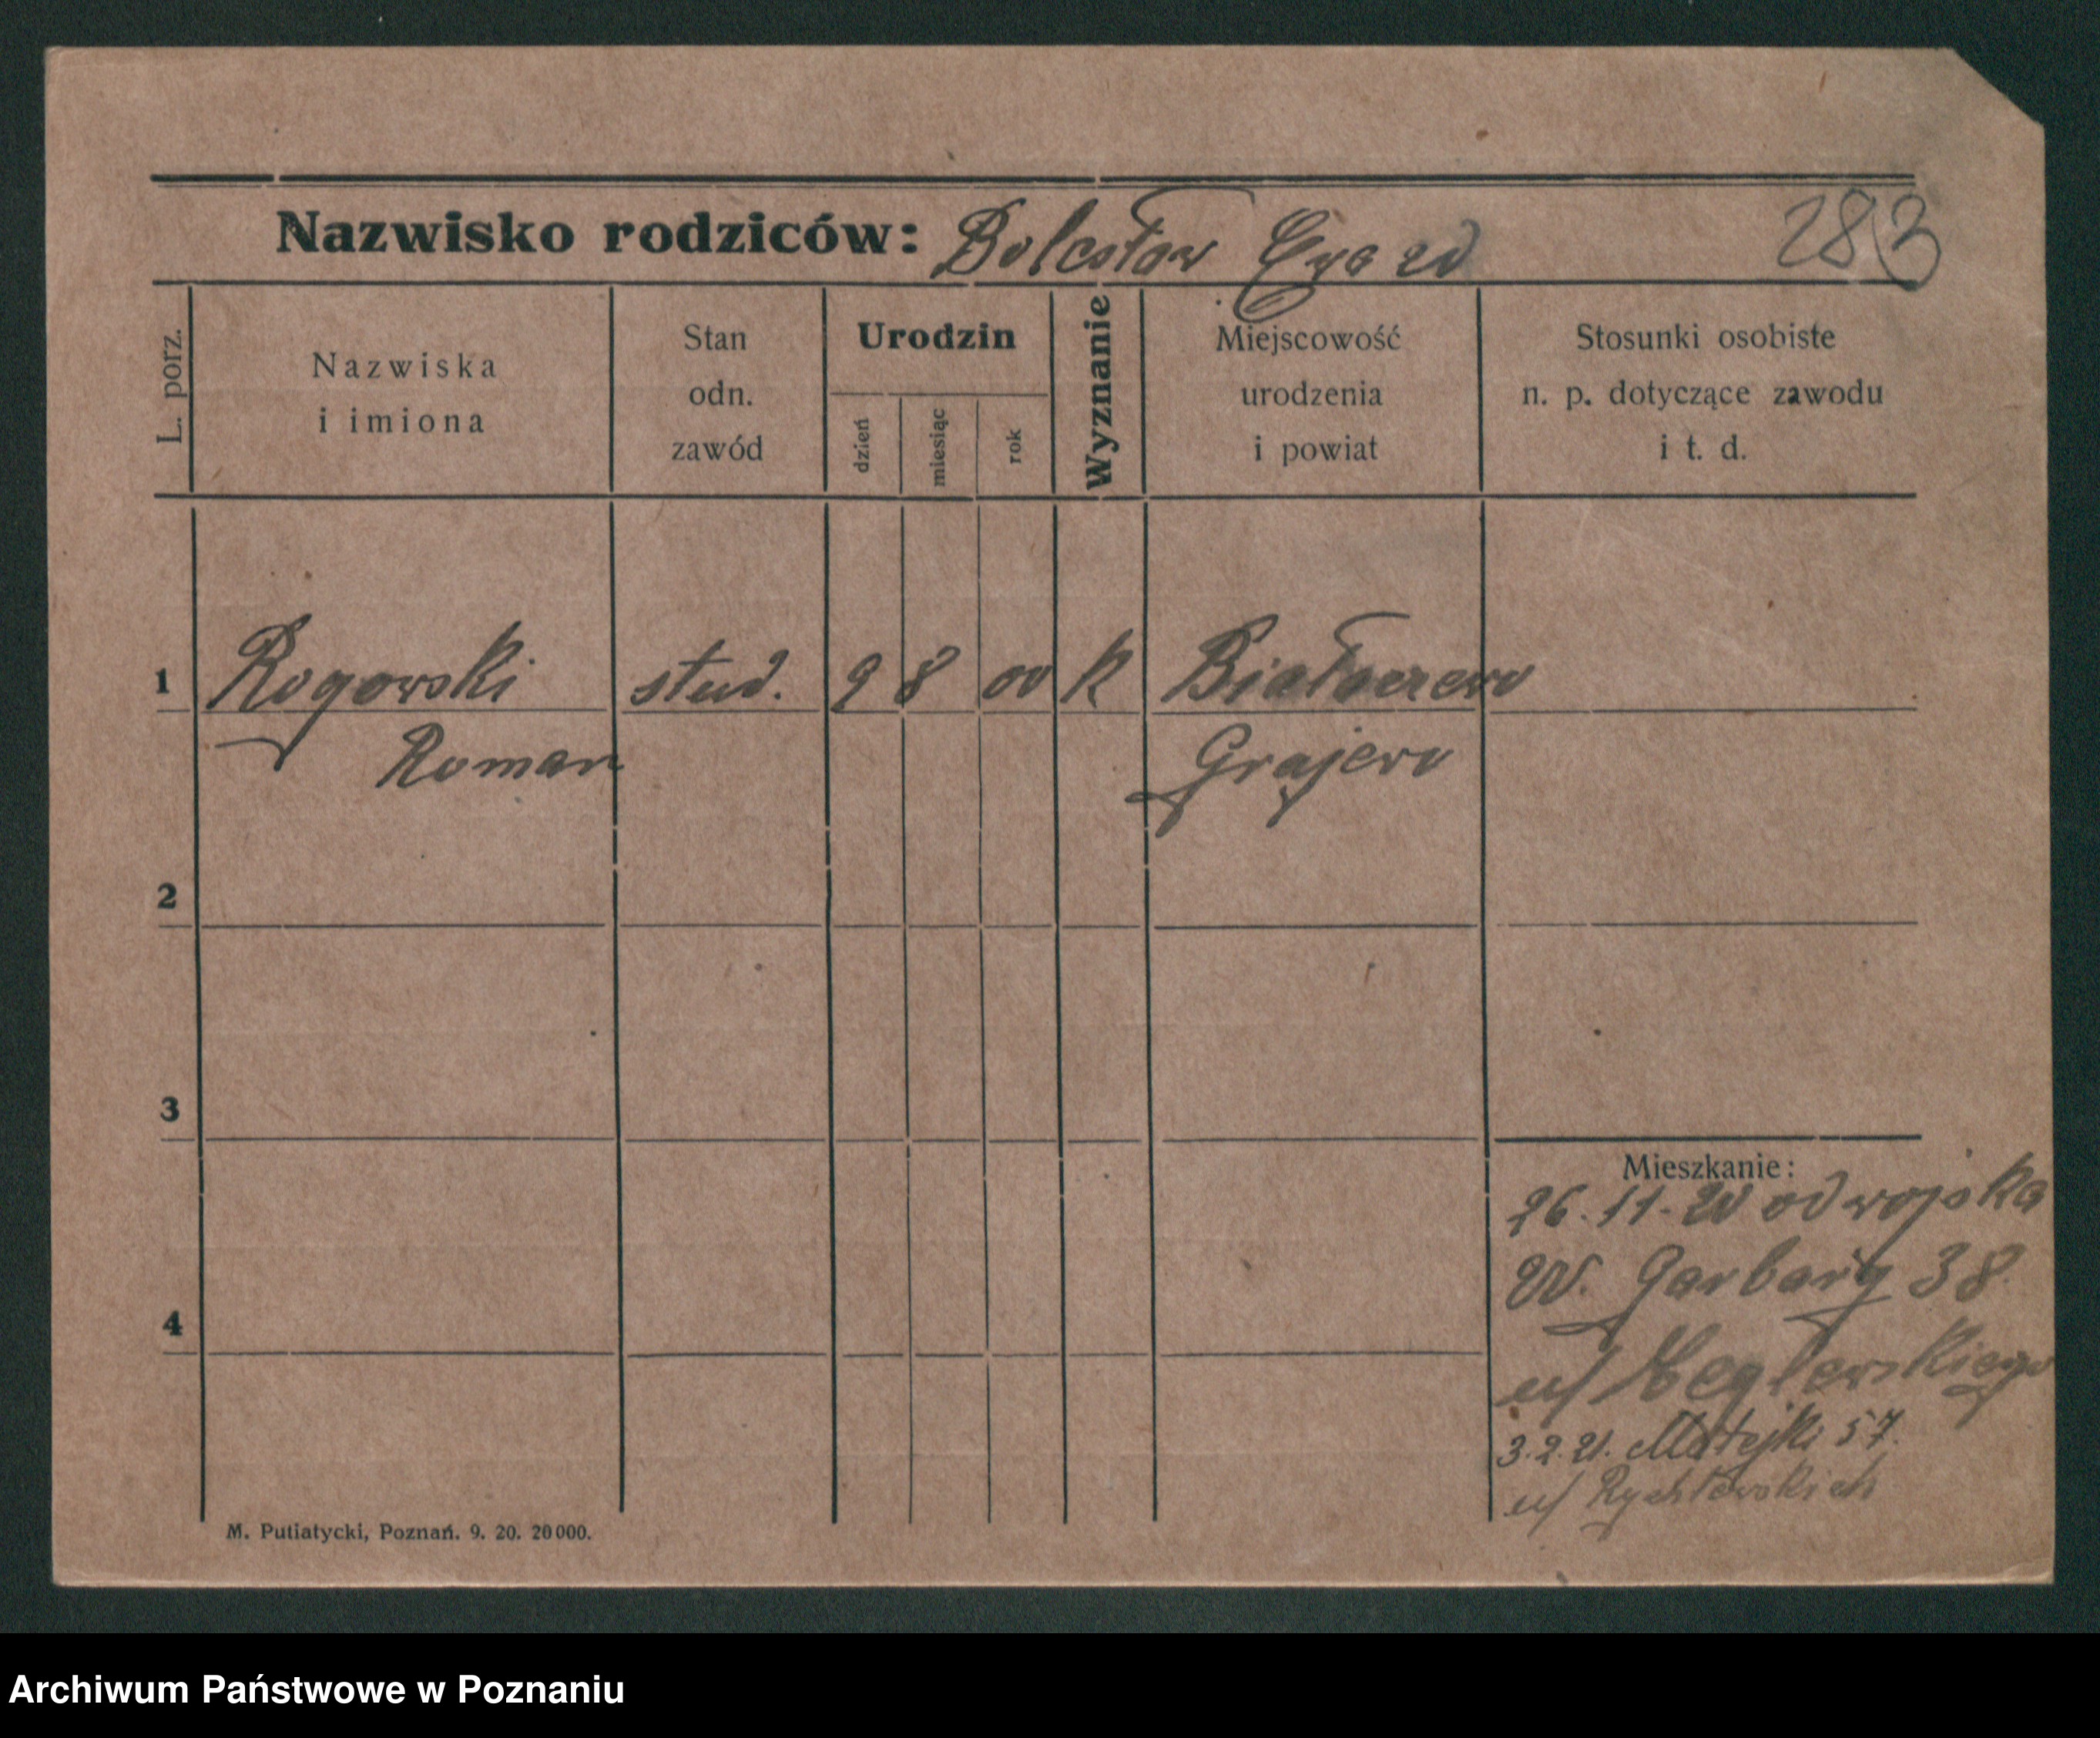 Nazwisko rodziców: Bolesław 283
L. porz.
Nazwiska
i imiona
Stan
odn.
zawód
Urodzin
dzień
miesiąc
rok
Wyznanie
Miejscowość
urodzenia
i powiat
Stosunki osobiste
n. p. dotyczące zawodu
i t. d.
1 Rogowski stud. 9 8 00 k
Roman Grajewo
2
3
4
Mieszkanie:
26.11.20 od wojska
W. Garbary 38
u/
3.2.21. Matejki 57.
u/ Rychłewskich
M. Putiatycki, Poznań. 9. 20. 20000.
Archiwum Państwowe w Poznaniu